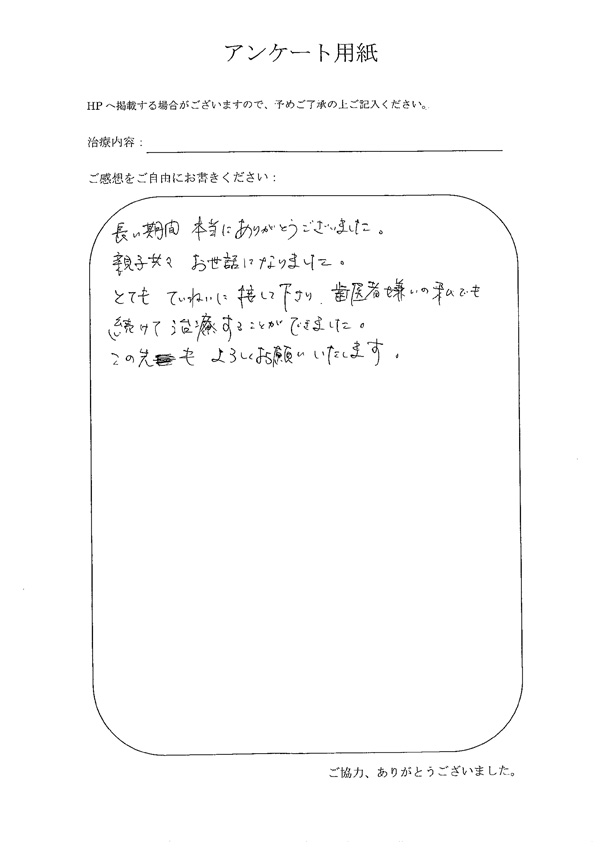 アンケート用紙
HPへ掲載する場合がございますので、予めご了承の上ご記入ください。
治療内容：
ご感想をご自由にお書きください：
長い期間 本当にありがとうございました。
親子共々 お世話になりました。
とても ていねいに 接して下さり、歯医者嫌いの私でも
続けて治療することができました。
この先も よろしくお願いいたします。
ご協力、ありがとうございました。